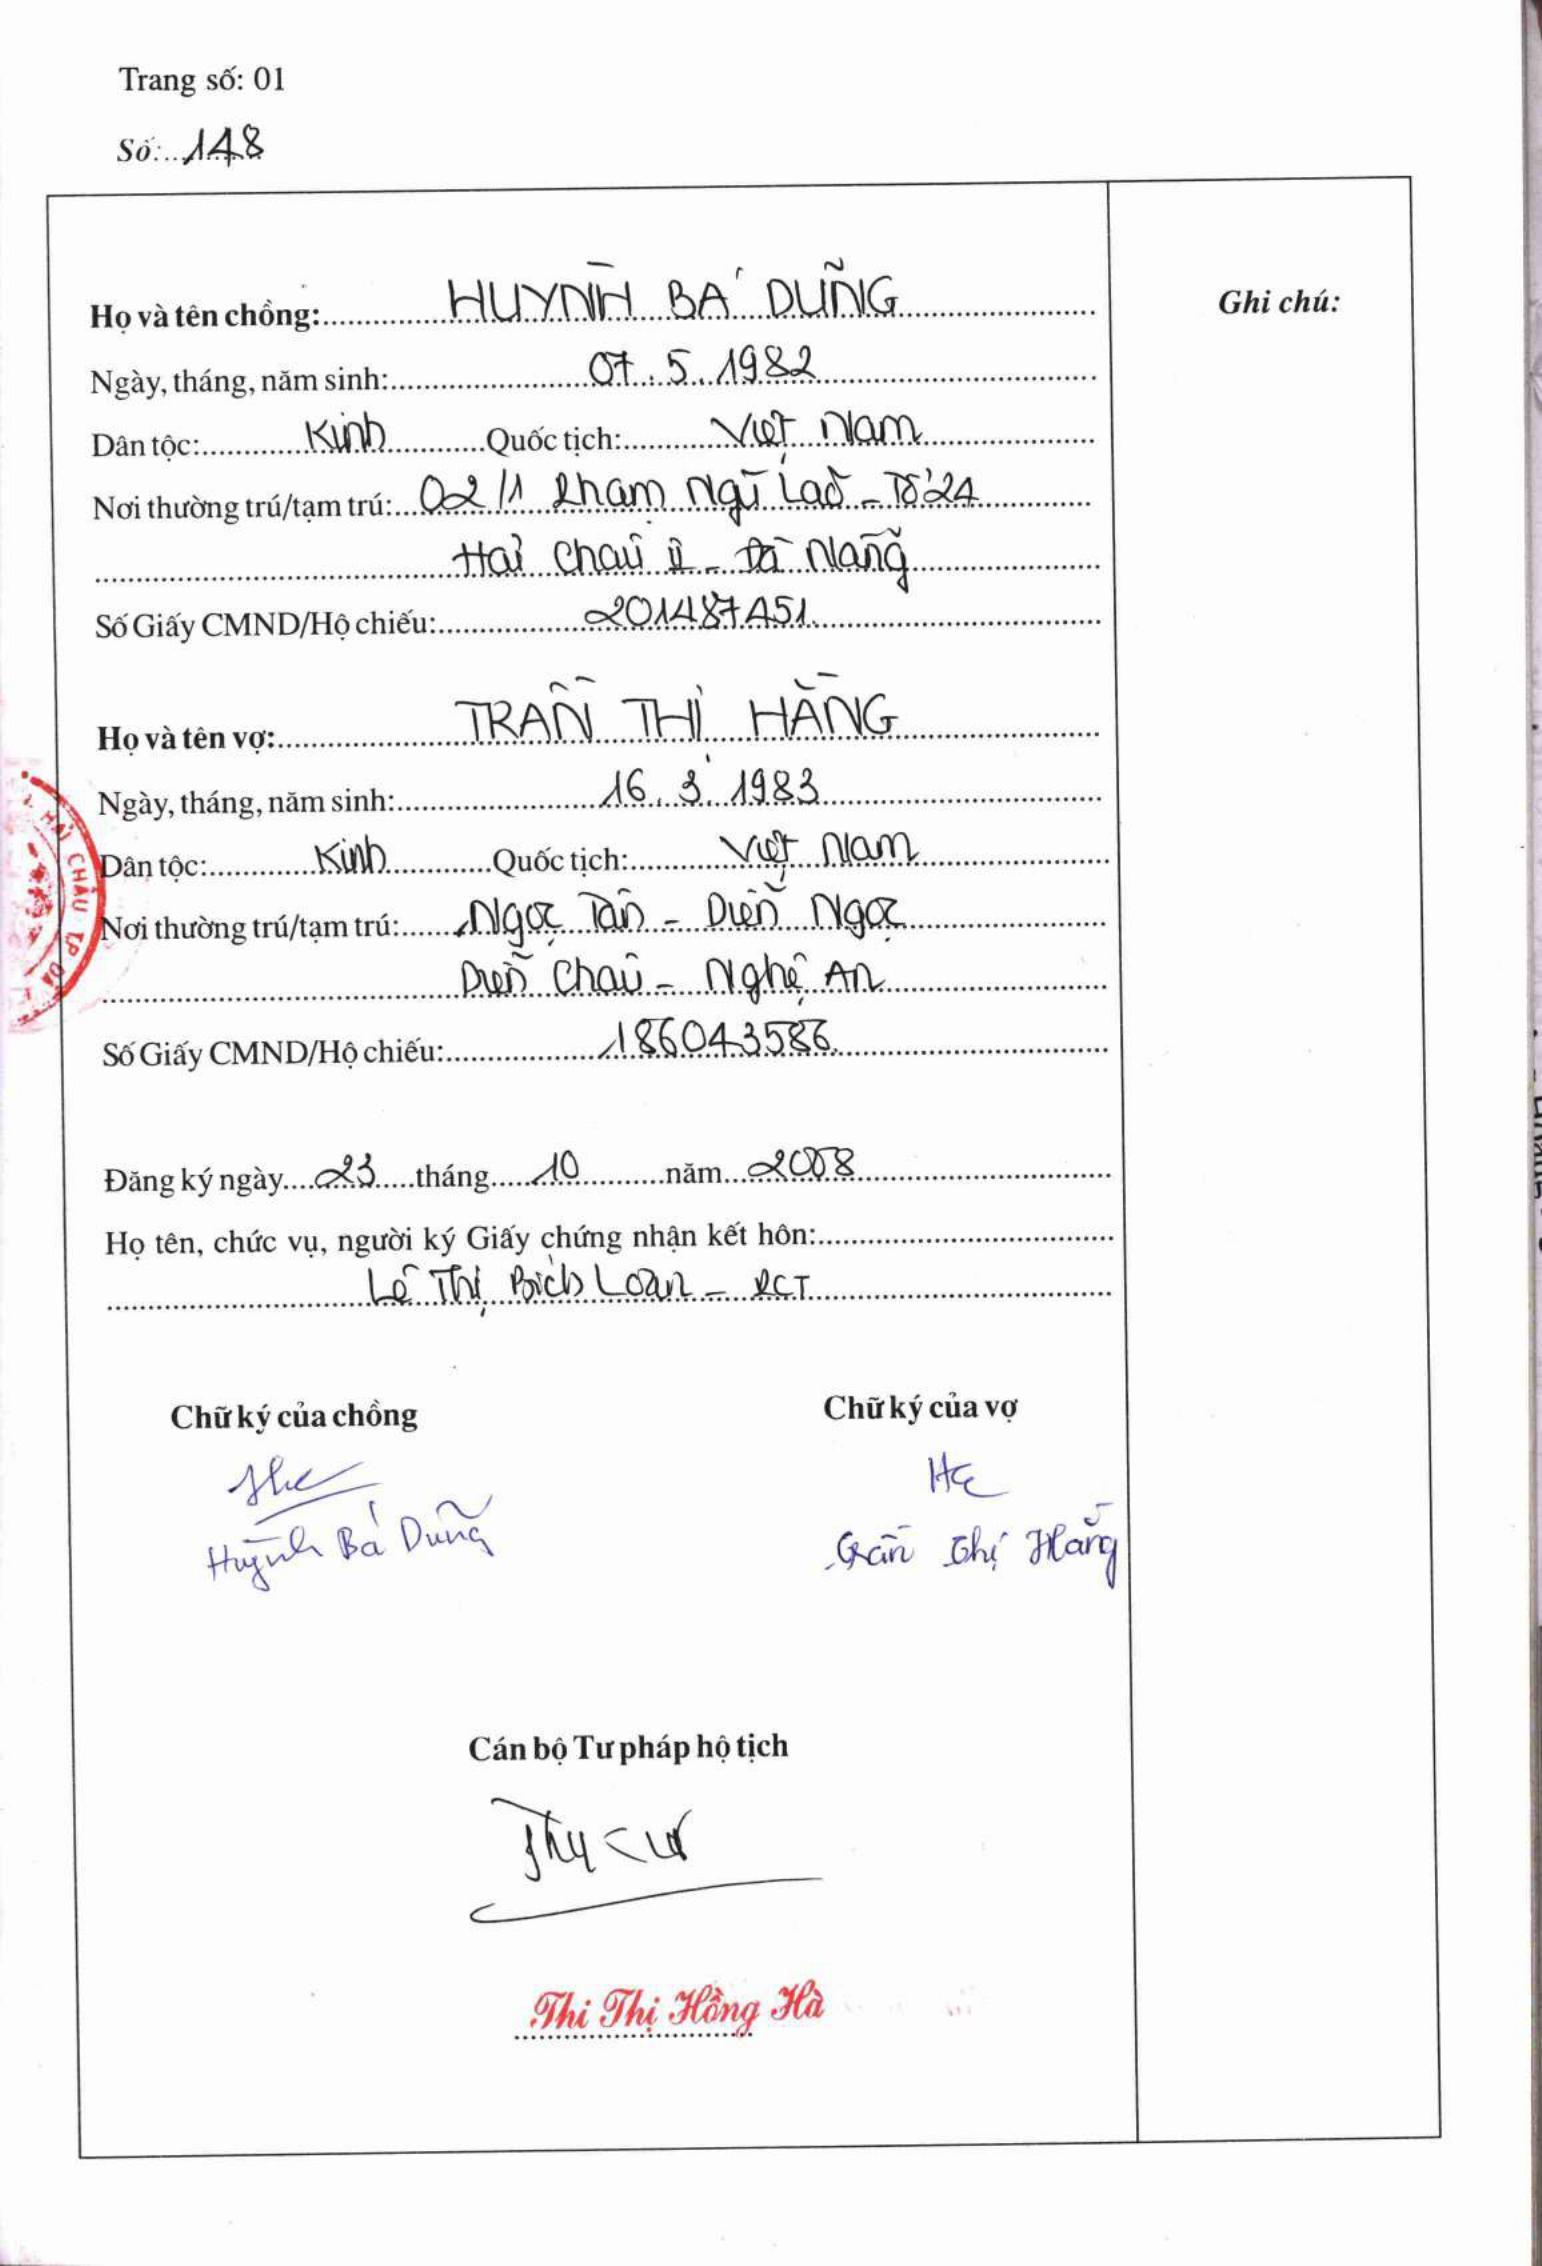 Trang số: 01
Số: 148
Họ và tên chồng: HUỲNH BÁ DŨNG
Ghi chú:
Ngày, tháng, năm sinh: 07.5.1982
Dân tộc: Kinh Quốc tịch: Việt Nam
Nơi thường trú/tạm trú: 02/1 Phạm Ngũ Lão - Tổ 24
Hải Châu II - Đà Nẵng
Số Giấy CMND/Hộ chiếu: 201487451
Họ và tên vợ: TRẦN THỊ HẰNG
Ngày, tháng, năm sinh: 16.3.1983
Dân tộc: Kinh Quốc tịch: Việt Nam
Nơi thường trú/tạm trú: Ngọc Tân - Diễn Ngọc
Diễn Châu - Nghệ An
Số Giấy CMND/Hộ chiếu: 186043586
HẢI CHÂU TP ĐÀ
Đăng ký ngày 23 tháng 10 năm 2008
Họ tên, chức vụ, người ký Giấy chứng nhận kết hôn:
Lê Thị Bích Loan - PCT
Chữ ký của chồng
Chữ ký của vợ
Huỳnh Bá Dũng
Trần Thị Hằng
Cán bộ Tư pháp hộ tịch
Thi Thị Hồng Hà